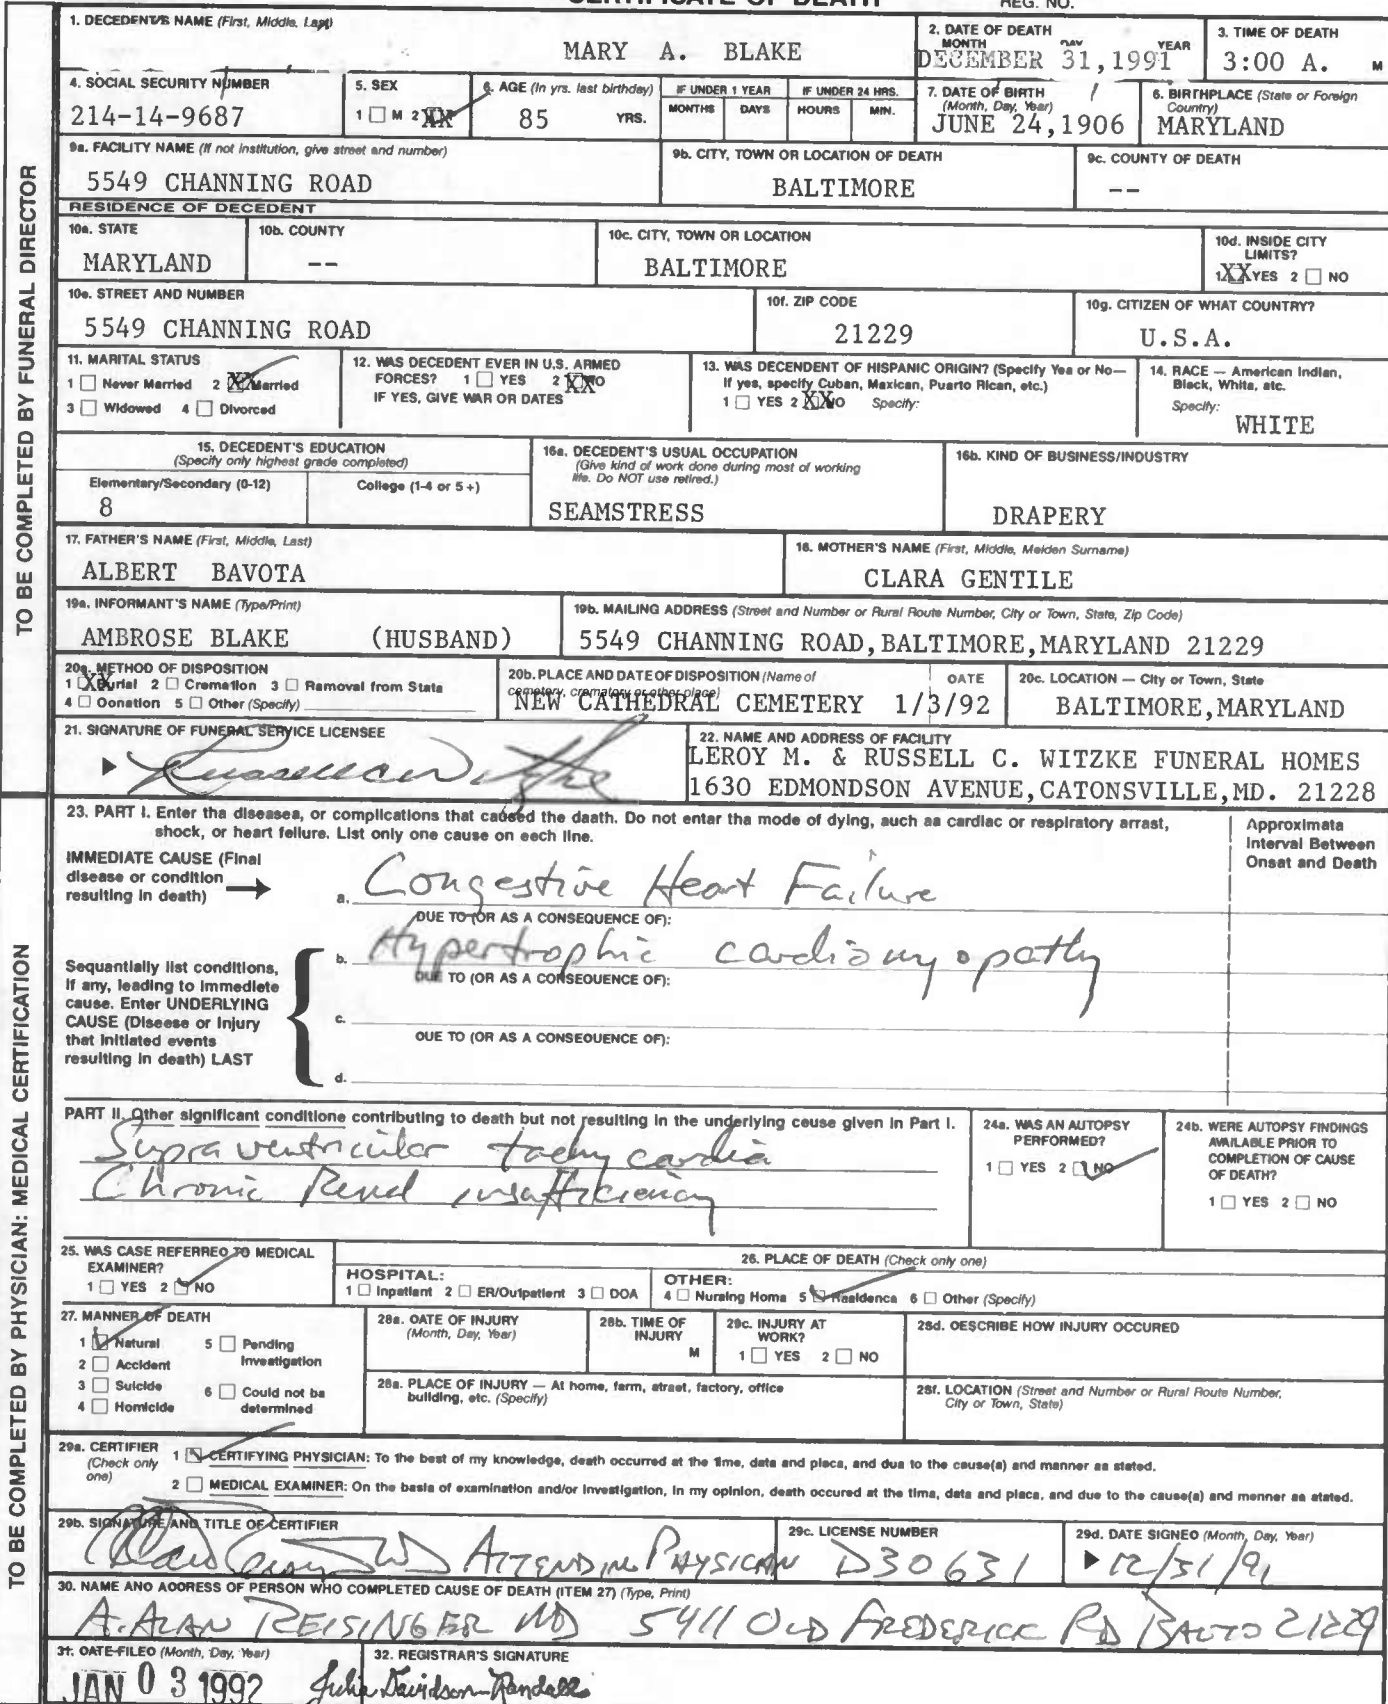 CERTIFICATE OF DEATH
REG. NO.
TO BE COMPLETED BY FUNERAL DIRECTOR
1. DECEDENT'S NAME (First, Middle, Last)
MARY A. BLAKE
2. DATE OF DEATH
MONTH DAY YEAR
DECEMBER 31,1991
3. TIME OF DEATH
3:00 A. M
4. SOCIAL SECURITY NUMBER
214-14-9687
5. SEX
1 ☐ M 2 XX
6. AGE (In yrs. last birthday)
85 YRS.
IF UNDER 1 YEAR
MONTHS DAYS
IF UNDER 24 HRS.
HOURS MIN.
7. DATE OF BIRTH
(Month, Day, Year)
JUNE 24,1906
8. BIRTHPLACE (State or Foreign Country)
MARYLAND
9a. FACILITY NAME (If not institution, give street and number)
5549 CHANNING ROAD
9b. CITY, TOWN OR LOCATION OF DEATH
BALTIMORE
9c. COUNTY OF DEATH
--
RESIDENCE OF DECEDENT
10a. STATE
MARYLAND
10b. COUNTY
--
10c. CITY, TOWN OR LOCATION
BALTIMORE
10d. INSIDE CITY LIMITS?
1 XX YES 2 ☐ NO
10e. STREET AND NUMBER
5549 CHANNING ROAD
10f. ZIP CODE
21229
10g. CITIZEN OF WHAT COUNTRY?
U.S.A.
11. MARITAL STATUS
1 ☐ Never Married 2 XX Married
3 ☐ Widowed 4 ☐ Divorced
12. WAS DECEDENT EVER IN U.S. ARMED
FORCES? 1 ☐ YES 2 XX NO
IF YES, GIVE WAR OR DATES
13. WAS DECENDENT OF HISPANIC ORIGIN? (Specify Yes or No—
If yes, specify Cuban, Mexican, Puerto Rican, etc.)
1 ☐ YES 2 XX NO Specify:
14. RACE — American Indian,
Black, White, etc.
Specify:
WHITE
15. DECEDENT'S EDUCATION
(Specify only highest grade completed)
Elementary/Secondary (0-12) College (1-4 or 5+)
8
16a. DECEDENT'S USUAL OCCUPATION
(Give kind of work done during most of working
life. Do NOT use retired.)
SEAMSTRESS
16b. KIND OF BUSINESS/INDUSTRY
DRAPERY
17. FATHER'S NAME (First, Middle, Last)
ALBERT BAVOTA
18. MOTHER'S NAME (First, Middle, Maiden Surname)
CLARA GENTILE
19a. INFORMANT'S NAME (Type/Print)
AMBROSE BLAKE (HUSBAND)
19b. MAILING ADDRESS (Street and Number or Rural Route Number, City or Town, State, Zip Code)
5549 CHANNING ROAD,BALTIMORE,MARYLAND 21229
20a. METHOD OF DISPOSITION
1 XX Burial 2 ☐ Cremation 3 ☐ Removal from State
4 ☐ Donation 5 ☐ Other (Specify)
20b. PLACE AND DATE OF DISPOSITION (Name of
cemetery, crematory or other place) DATE
NEW CATHEDRAL CEMETERY 1/3/92
20c. LOCATION — City or Town, State
BALTIMORE,MARYLAND
21. SIGNATURE OF FUNERAL SERVICE LICENSEE
Russell C Witzke
22. NAME AND ADDRESS OF FACILITY
LEROY M. & RUSSELL C. WITZKE FUNERAL HOMES
1630 EDMONDSON AVENUE,CATONSVILLE,MD. 21228
TO BE COMPLETED BY PHYSICIAN: MEDICAL CERTIFICATION
23. PART I. Enter the diseases, or complications that caused the death. Do not enter the mode of dying, such as cardiac or respiratory arrest,
shock, or heart failure. List only one cause on each line.
Approximate
Interval Between
Onset and Death
IMMEDIATE CAUSE (Final
disease or condition
resulting in death)
a. Congestive Heart Failure
DUE TO (OR AS A CONSEQUENCE OF):
b. Hypertrophic cardiomyopathy
DUE TO (OR AS A CONSEQUENCE OF):
Sequentially list conditions,
if any, leading to immediate
cause. Enter UNDERLYING
CAUSE (Disease or injury
that initiated events
resulting in death) LAST
c.
DUE TO (OR AS A CONSEQUENCE OF):
d.
PART II. Other significant conditions contributing to death but not resulting in the underlying cause given in Part I.
Supraventricular tachycardia
Chronic Renal insufficiency
24a. WAS AN AUTOPSY
PERFORMED?
1 ☐ YES 2 ☑ NO
24b. WERE AUTOPSY FINDINGS
AVAILABLE PRIOR TO
COMPLETION OF CAUSE
OF DEATH?
1 ☐ YES 2 ☐ NO
25. WAS CASE REFERRED TO MEDICAL
EXAMINER?
1 ☐ YES 2 ☑ NO
26. PLACE OF DEATH (Check only one)
HOSPITAL:
1 ☐ Inpatient 2 ☐ ER/Outpatient 3 ☐ DOA
OTHER:
4 ☐ Nursing Home 5 ☑ Residence 6 ☐ Other (Specify)
27. MANNER OF DEATH
1 ☑ Natural 5 ☐ Pending
2 ☐ Accident Investigation
3 ☐ Suicide 6 ☐ Could not be
4 ☐ Homicide determined
28a. DATE OF INJURY
(Month, Day, Year)
28b. TIME OF
INJURY
M
28c. INJURY AT
WORK?
1 ☐ YES 2 ☐ NO
28d. DESCRIBE HOW INJURY OCCURED
28e. PLACE OF INJURY — At home, farm, street, factory, office
building, etc. (Specify)
28f. LOCATION (Street and Number or Rural Route Number,
City or Town, State)
29a. CERTIFIER
(Check only
one)
1 ☑ CERTIFYING PHYSICIAN: To the best of my knowledge, death occurred at the time, date and place, and due to the cause(s) and manner as stated.
2 ☐ MEDICAL EXAMINER: On the basis of examination and/or investigation, in my opinion, death occured at the time, date and place, and due to the cause(s) and manner as stated.
29b. SIGNATURE AND TITLE OF CERTIFIER
ATTENDIN PHYSICAN
29c. LICENSE NUMBER
D30631
29d. DATE SIGNED (Month, Day, Year)
12/31/91
30. NAME AND ADDRESS OF PERSON WHO COMPLETED CAUSE OF DEATH (ITEM 27) (Type, Print)
A. ALAN REISINGER MD 5411 OLD FREDERICK RD BALTO 21229
31. DATE FILED (Month, Day, Year)
JAN 03 1992
32. REGISTRAR'S SIGNATURE
Julia Davidson-Randall